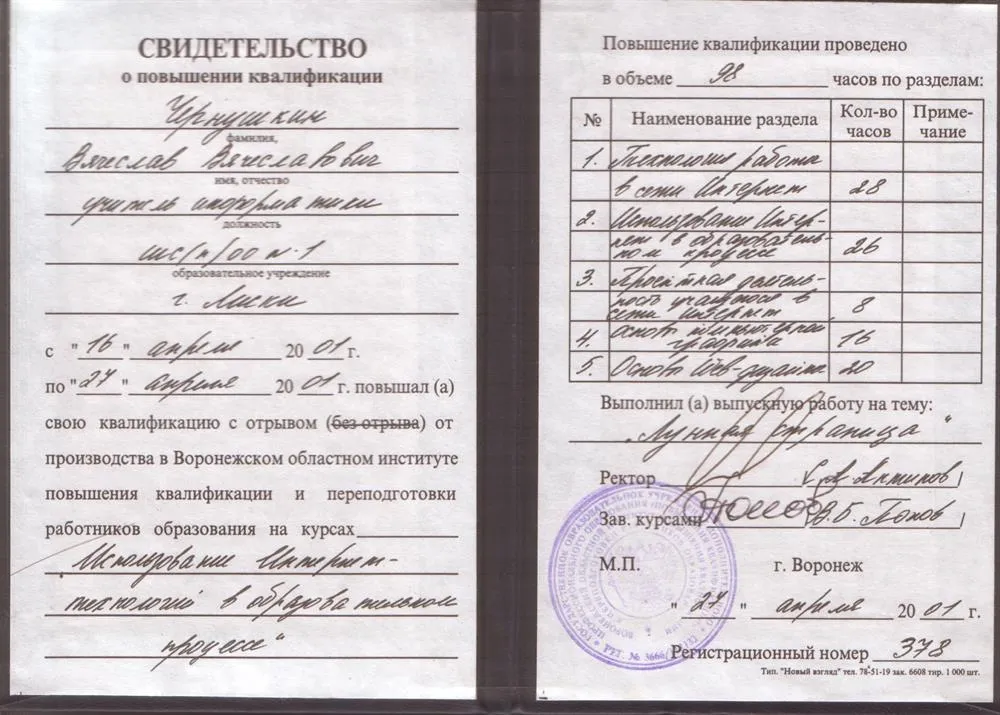 СВИДЕТЕЛЬСТВО
о повышении квалификации
Чернушкин
фамилия,
Вячеслав Вячеславович
имя, отчество
учитель информатики
должность
шс(п)оо №1
образовательное учреждение
г. Лиски
с "16" апреля 2001 г.
по "27" апреля 2001 г. повышал (а)
свою квалификацию с отрывом (без отрыва) от
производства в Воронежском областном институте
повышения квалификации и переподготовки
работников образования на курсах
"Использование Интернет-
технологий в образовательном
процессе"
Повышение квалификации проведено
в объеме 98 часов по разделам:
№ Наименование раздела Кол-во часов Приме-чание
1. Технология работы
в сети Интернет 28
2. Использование Интер-
нет в образователь-
ном процессе 26
3. Проектная деятель-
ность учащихся в
сети Интернет 8
4. Основы компьютерной
графики 16
5. Основы Web-дизайна 20
Выполнил (а) выпускную работу на тему:
"Лунная страница"
Ректор
Зав. курсами В.Б. Попов
М.П. г. Воронеж
"27" апреля 2001 г.
Регистрационный номер 378
Тип. "Новый взгляд" тел. 78-51-19 зак. 6608 тир. 1 000 шт.